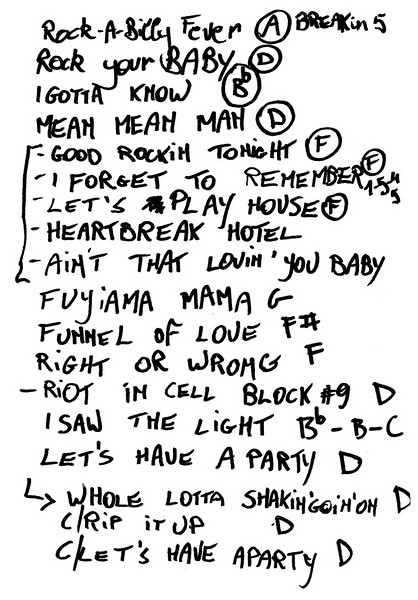 Rock-A-Billy Fever A BREAK in 5
Rock your BABY D
I GOTTA KNOW Bb
MEAN MEAN MAN D
- GOOD ROCKIN TONIGHT F
- I FORGET TO REMEMBER F
- LET'S PLAY HOUSE F 1-5-4
5
- HEARTBREAK HOTEL
- AIN'T THAT LOVIN' YOU BABY
FUYIAMA MAMA G
FUNNEL OF LOVE F#
RIGHT OR WROMG F
- RIOT IN CELL BLOCK #9 D
I SAW THE LIGHT Bb - B - C
LET'S HAVE A PARTY D
↳ WHOLE LOTTA SHAKIN' GOIN' ON D
C/RIP IT UP D
C/LET'S HAVE APARTY D